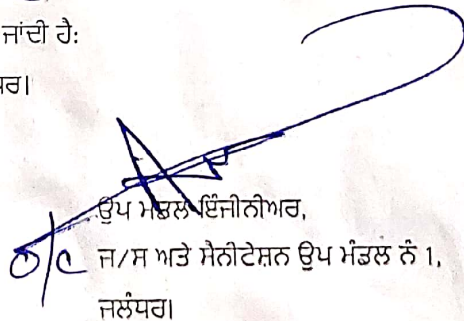 ਜਾਂਦੀ ਹੈ:
ਧਰ।
ਉਪ ਮੰਡਲ ਇੰਜੀਨੀਅਰ,
o/c ਜ/ਸ ਅਤੇ ਸੈਨੀਟੇਸ਼ਨ ਉਪ ਮੰਡਲ ਨੰ 1,
ਜਲੰਧਰ।